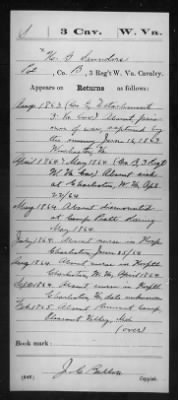 S | 3 Cav. | W. Va.
Geo. F. Saunders
Pvt, Co. B, 3 Reg't W. Va. Cavalry.
Appears on Returns as follows:
Aug. 1863 (Co. E, Detachment
3d Va Cav) Absent, pris-
oner of war, captured by
the enemy June 14, 1863
Winchester, Va
April 1864 & May 1864 (Co. B, 3 Regt
W. Va Cav) Absent sick
at Charleston, W. Va Apr.
22/64
May 1864 Absent dismounted
at Camp Piatt during
May 1864
July 1864. Absent nurse in Hosp'l
Charleston June 25/64
Aug. 1864. Absent nurse in Hosp'l
Charleston W. Va, April 1864
Sept 1864. Absent nurse in Hosp'l
Charleston Va, date unknown
Feb. 1865 Absent Remount Camp,
Pleasant Valley, Md
(over)
Book mark:
Copyist.